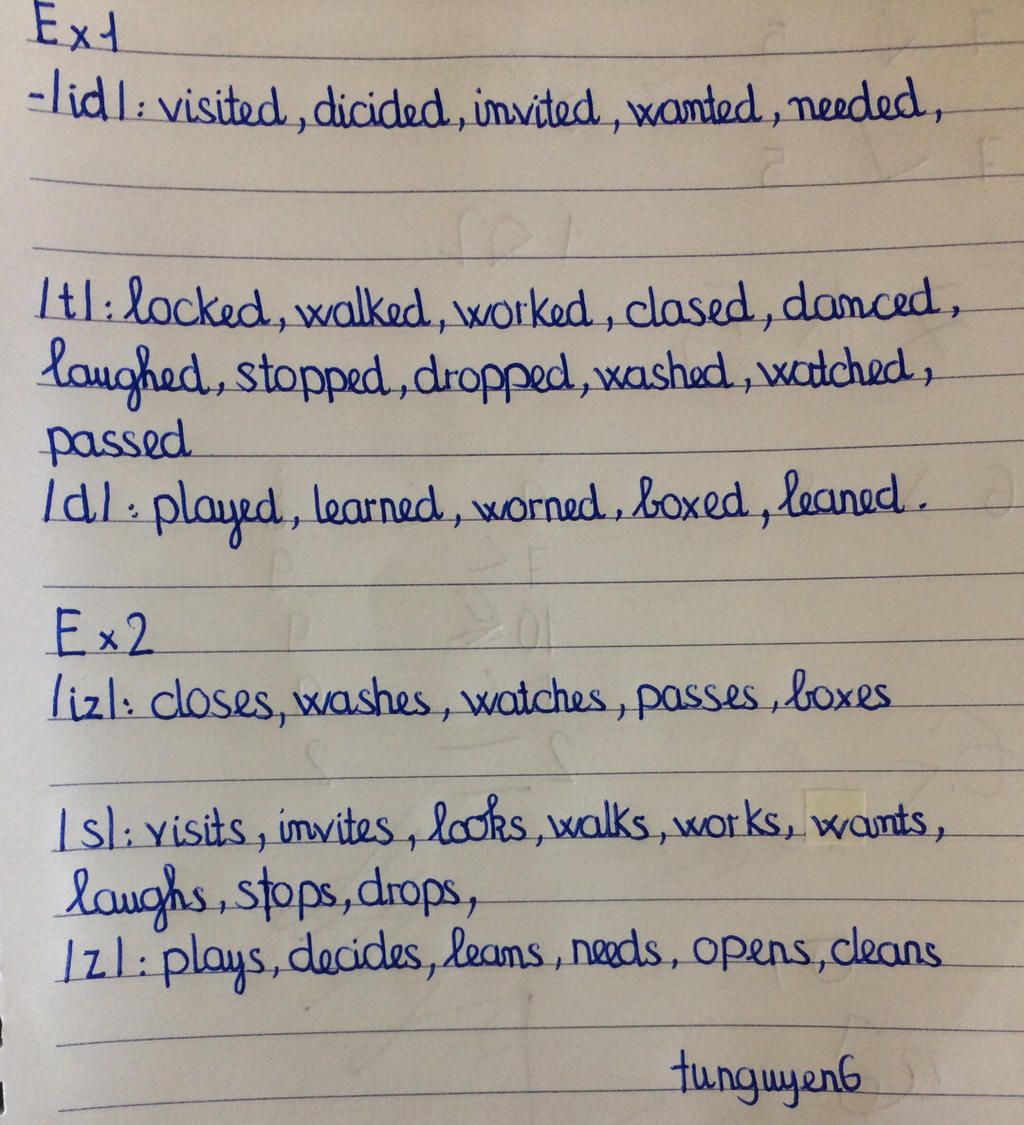 Ex1
-/id/: visited, dicided, invited, wanted, needed,
/t/: locked, walked, worked, clased, danced,
laughed, stopped, dropped, washed, watched,
passed
/d/: played, learned, worned, boxed, leaned.
Ex2
/iz/: closes, washes, watches, passes, boxes
/s/: visits, invites, looks, walks, works, wants,
laughs, stops, drops,
/z/: plays, decides, leans, needs, opens, cleans
tunguyen6